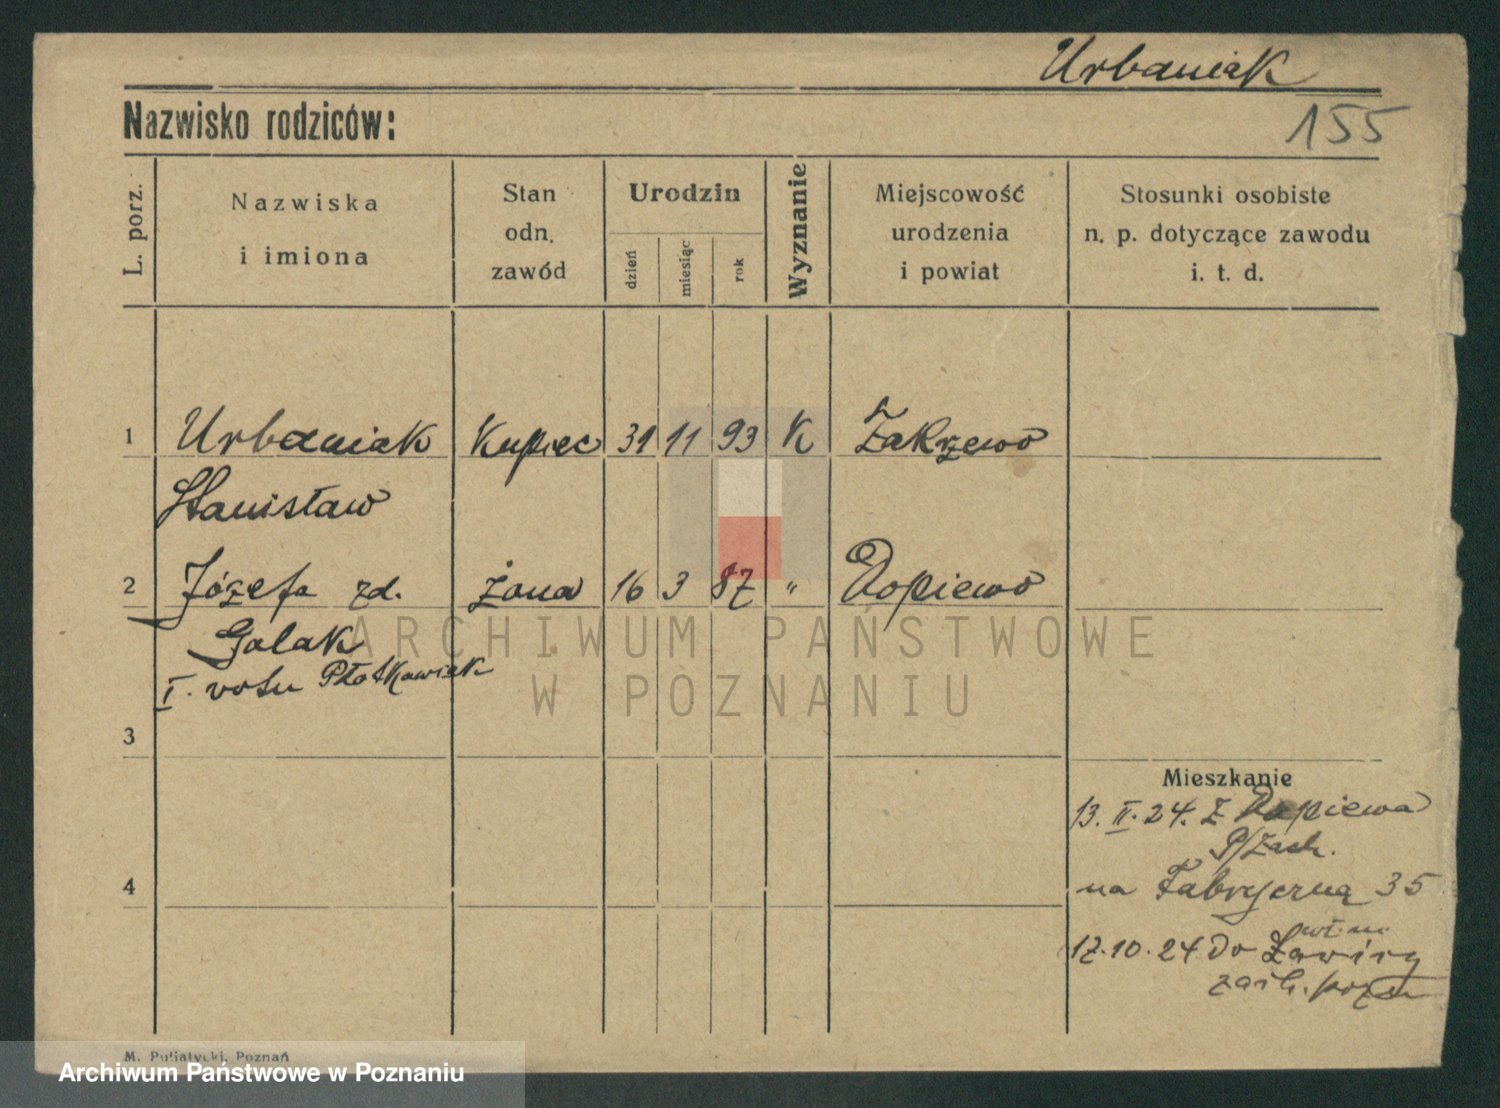 Urbaniak
155
Nazwisko rodziców:
L. porz.
Nazwiska
i imiona
Stan
odn.
zawód
Urodzin
dzień
miesiąc
rok
Wyznanie
Miejscowość
urodzenia
i powiat
Stosunki osobiste
n. p. dotyczące zawodu
i. t. d.
1 Urbaniak Kupiec 31 11 93 K Zakrzewo
Stanisław
2 Józefa zd. żona 16 3 87 " Dopiewo
Golak
I. votu Płotkowiak
3
Mieszkanie
13. II. 24. z Dopiewa
P/Zach.
4
na Fabryczną 35
17.10.24 Do
ARCHIWUM PAŃSTWOWE
W POZNANIU
M. Puljatycki, Poznań
Archiwum Państwowe w Poznaniu